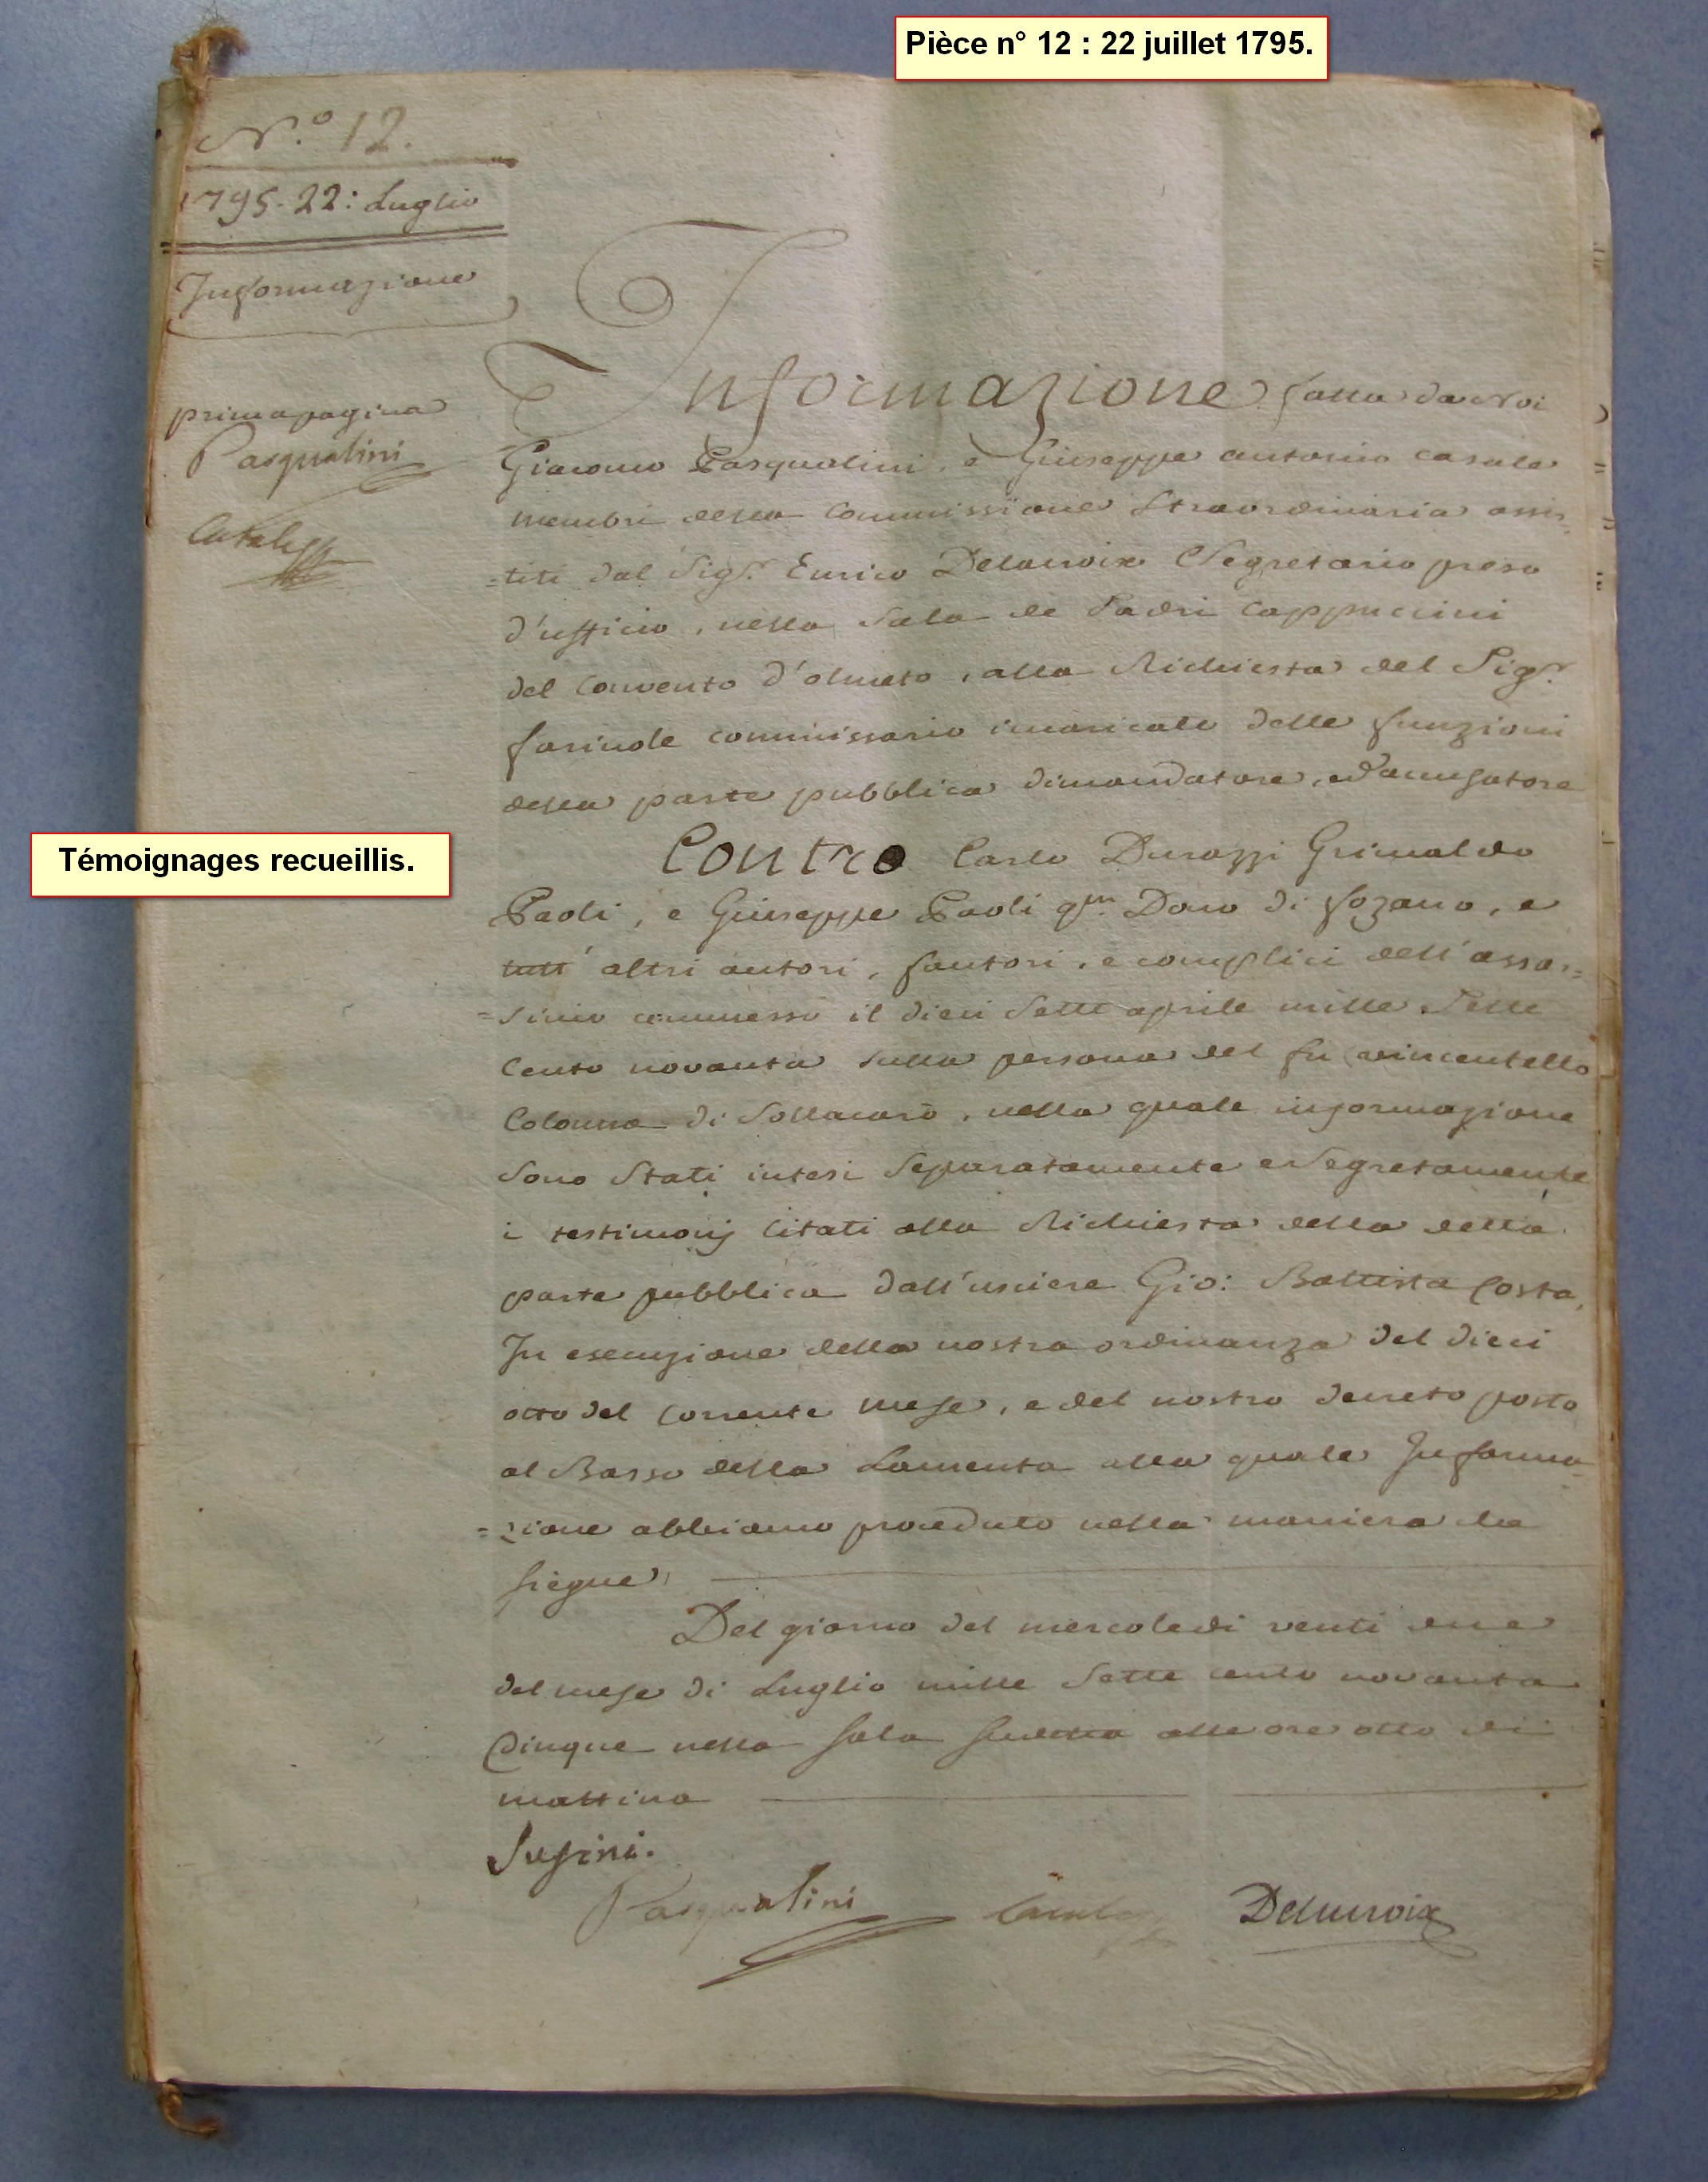 Pièce n° 12 : 22 juillet 1795.
N.° 12.
1795. 22: Luglio
Informazione
prima pagina
Pasqualini
Casale
Informazione fatta da Noi
Giacomo Pasqualini, e Giuseppe antonio casale
membri della Commissione Straordinaria assis=
=titi dal Sig.r Enrico Delacroix Segretario preso
d'ufficio, nella Sala de Padri Cappuccini
del Convento d'olmeto, alla Richiesta del Sig.r
farinole commissario incaricato delle funzioni
della parte pubblica dimandatore, ed'accusatore
Témoignages recueillis.
Contro Carlo Durazzi Grimaldo
Paoli, e Giuseppe Paoli q.m Doro di fozano, e
tutt' altri autori, fautori, e complici dell'assas=
=sinio commesso il dieci Sette aprile mille Sette
Cento novanta sulla persona del fu vincentello
Colonna di Sollacarò, nella quale informazione
Sono Stati intesi Separatamente e Segretamente
i testimonj Citati alla Richiesta della detta
parte pubblica dall'usciere Gio: Battista Costa,
In esecuzione della nostra ordinanza del dieci
otto del Corrente mese, e del nostro decreto posto
al Basso della Lamenta alla quale Informa=
=zione abbiamo proceduto nella maniera che
siegue
Del giorno del mercoledi venti due
del mese di Luglio mille Sette cento novanta
Cinque nella sala sudetta alle ore otto di
mattina
Susini.
Pasqualini Casale Delacroix